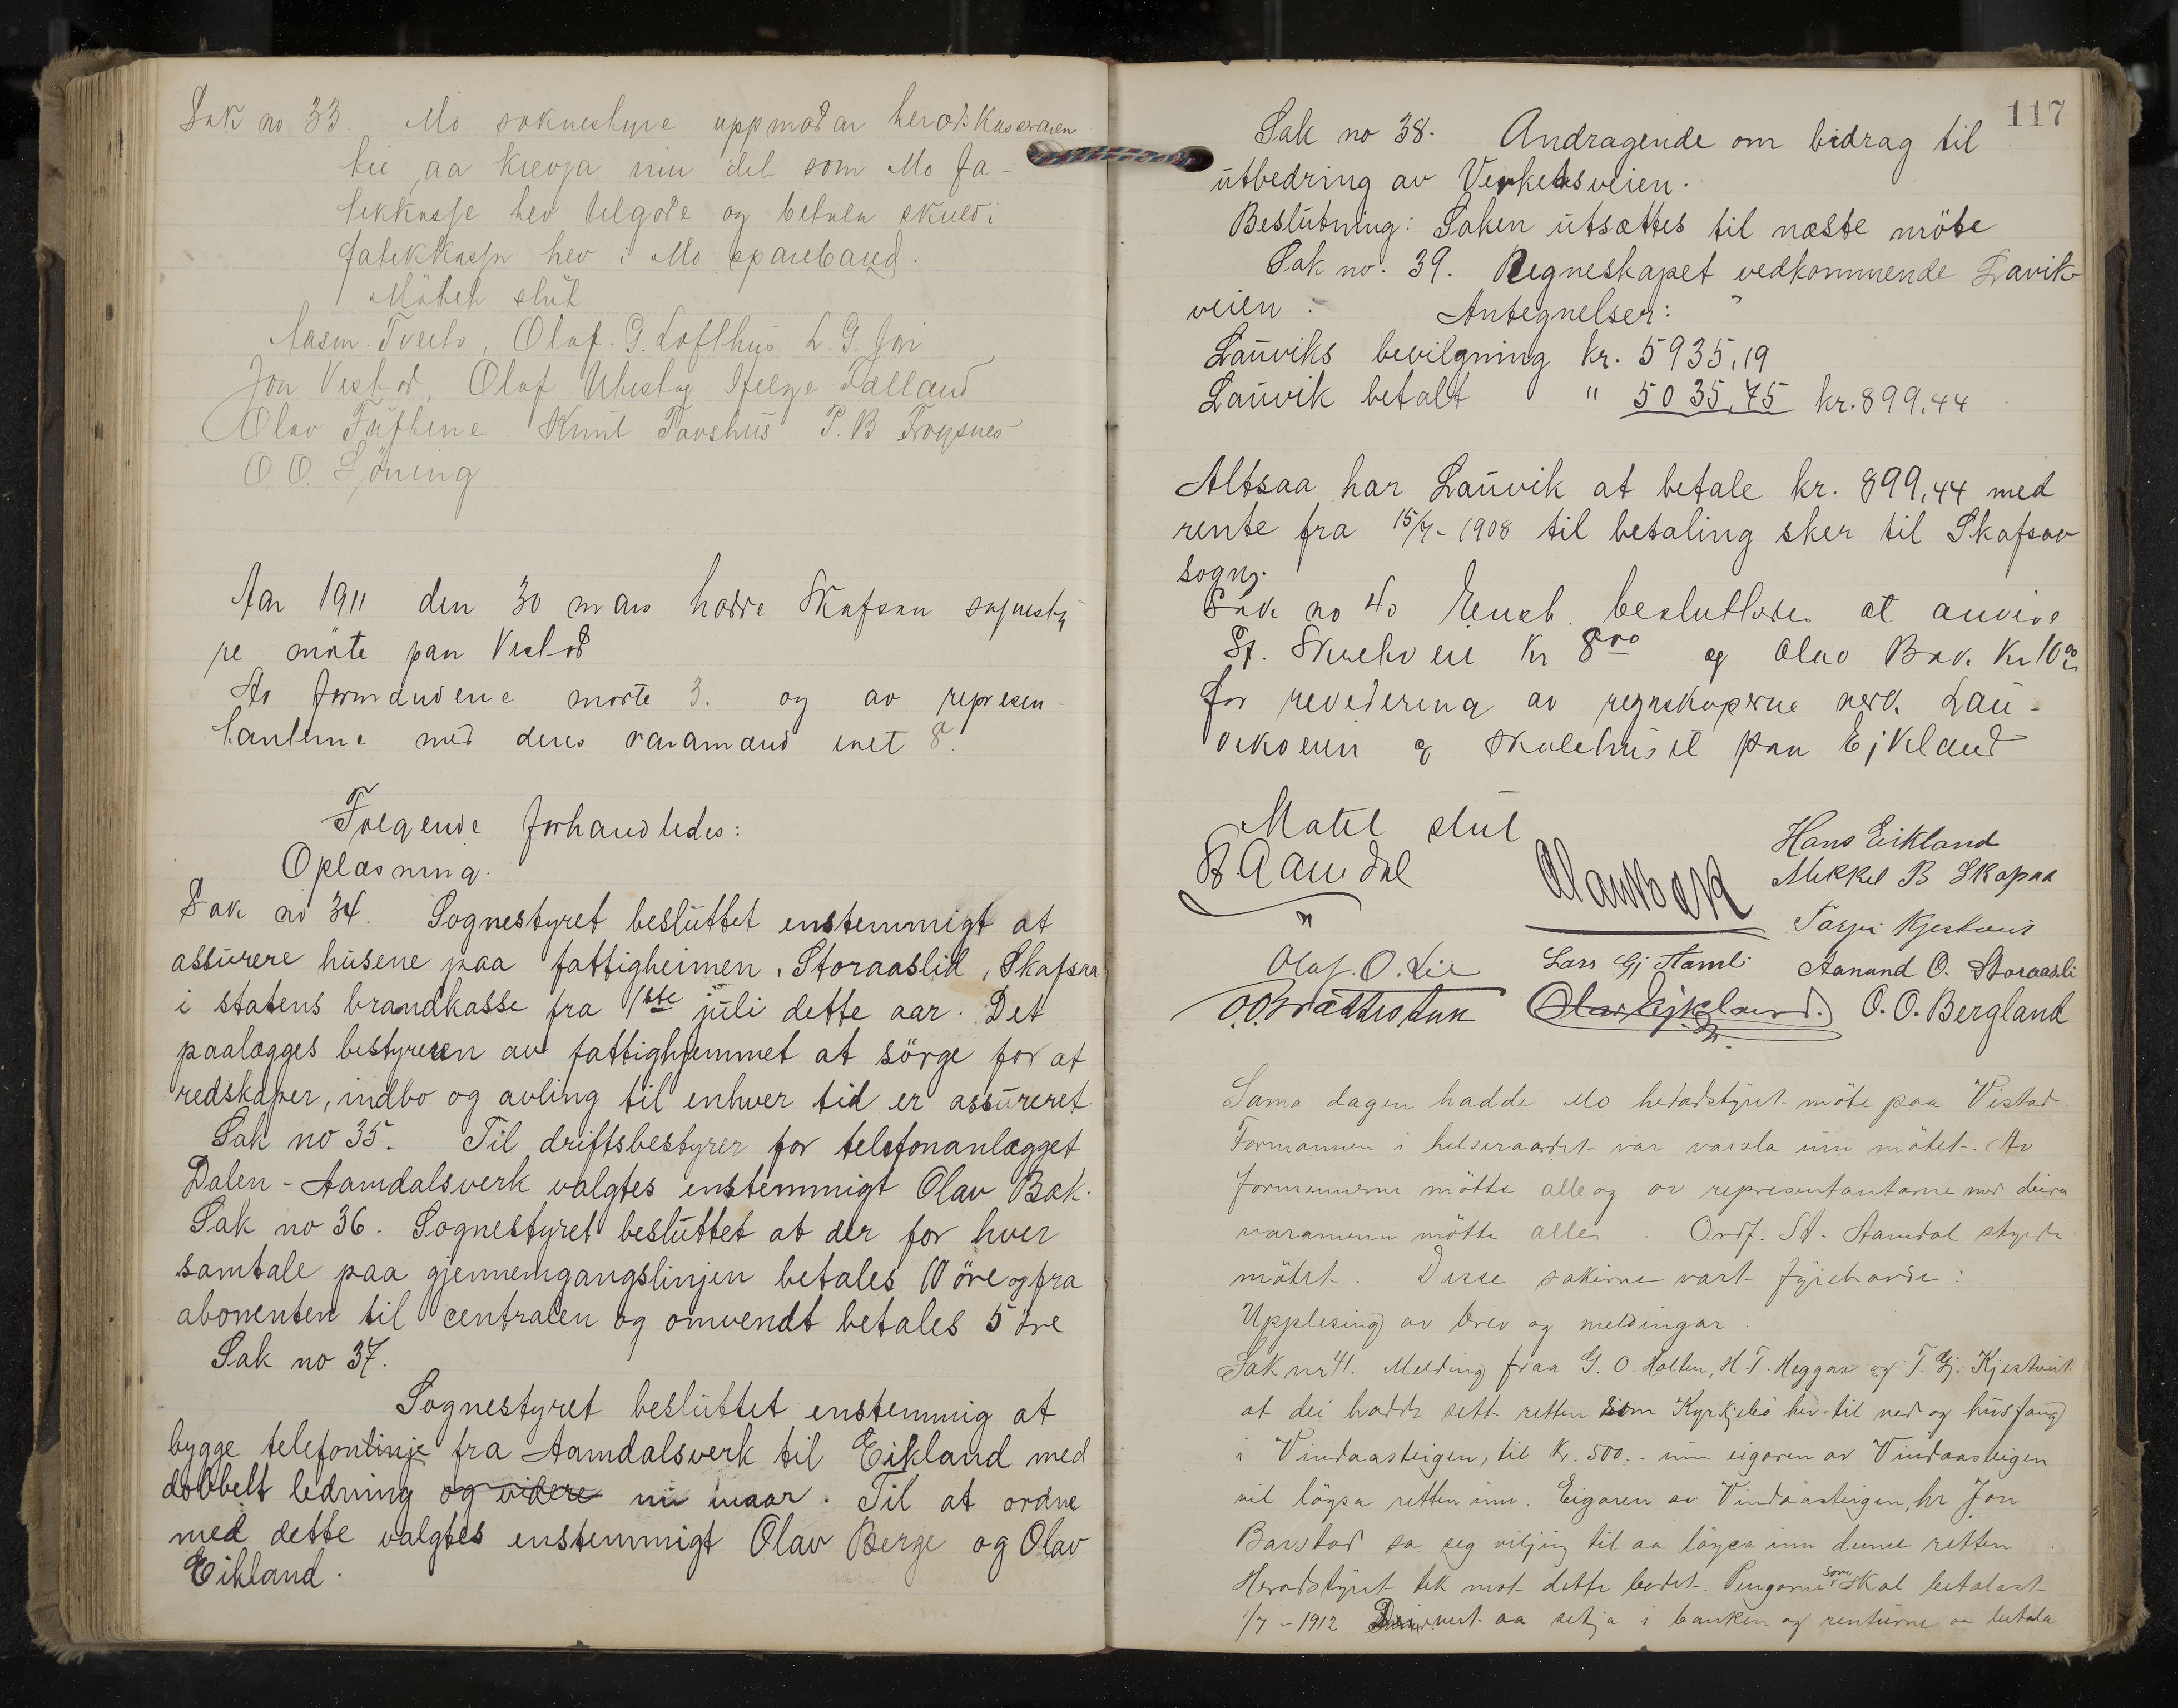 Sak no 33. Mo soknestyre uppmodar heradskasseraren
til aa krevja inn det som Mo fa-
tikkasse hev tilgode og betala skuld i
fatikkassa hev i Mo sparebank.
Mötet slut
Aasm. Tveito, Olaf. G. Lofthus L. G. Jon
Jon Vistad, Olaf Utistog Helge Dalland
Olav Tuftene. Knut Tovshus P. B Froysnes
O. O. Löning
Aar 1911 den 30 mars hadde Skafsaa sognesty
re möte paa Vistad
Av formændene mötte 3. og av represen-
tanterne med deres varamænd enet 8.
Følgende forhandledes:
Oplæsning.
Sak no 34. Sognestyret besluttet enstemmigt at
assurere husene paa fattigheimen, Storaaslid, Skafsaa
i statens brandkasse fra 1ste juli dette aar. Det
paalægges bestyreren av fattighjemmet at sörge for at
redskaper, indbo og avling til enhver tid er assureret
Sak no 35. Til driftsbestyrer for telefonanlægget
Dalen - Aamdalsverk valgtes enstemmigt Olav Bak.
Sak no 36. Sognestyret besluttet at der for hver
samtale paa gjennemgangslinjen betales 10 öre og fra
abonenten til centralen og omvendt betales 5 öre
Sak no 37.
Sognestyret besluttet enstemmig at
bygge telefonlinje fra Aamdalsverk til Eikland med
dobbelt ledning og videre nu i vaar. Til at ordne
med dette valgtes enstemmigt Olav Berge og Olav
Eikland.
117
Sak no 38. Andragende om bidrag til
utbedring av Verketsveien.
Beslutning: Saken utsættes til næste möte
Sak no. 39. Regneskapet vedkommende Lavik-
veien. Antegnelser:
Lauviks bevilgning kr. 5935,19
Lauvik betalt " 5035,75 kr. 899,44
Altsaa har Lauvik at betale kr. 899,44 med
rente fra 15/7-1908 til betaling sker til Skafsaa
sogn.
Sak no 40 Enst. besluttedes at anvise
St. Skredveit Kr 8.00 og Olav Bak Kr 10.00
for revidering av regnskaperne vedk. Lau-
viksveien og skolehuset paa Eikland
Mötet slut
St Aamdal
Olav Bak
Hans Eikland
Mikkel B Skapaa
Tarjei Kjestveit
Olaf. O. Lie
Lars Gj Hamli
Aanund O. Storaasli
O.O. Brattestuk
Olav Eikland.
O. O. Bergland
Sama dagen hadde Mo heradstyret möte paa Vistad.
Formannen i helseraadet var varsla um mötet. Av
formennerne mötte alle og av representantarne med deira
varamenn mötte alle. Ordf. St. Aamdal styrde
mötet. Desse sakirne vart fyrehavde:
Upplesing av brev og meldingar.
Sak nr 41. Melding fraa G. O. Holten, H. T. Heggaa og T. Gj. Kjestveit
at dei hadde sett retten som Kyrkjebö hev til ved og husfang
i Vindaasteigen, til Kr. 500.- um eigaren av Vindaasteigen
vil löysa retten inn. Eigaren av Vindaasteigen, hr Jon
Barstad sa seg viljug til aa löysa inn denne retten
Heradstyret tek mot dette bodet. Pengarne som skal betalast
1/7 - 1912 vert aa setja i banken og renturne aa betala